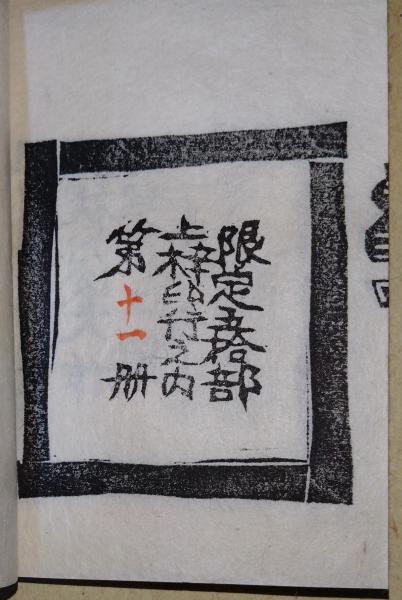 限定五拾部
上梓印行之内
第十一冊